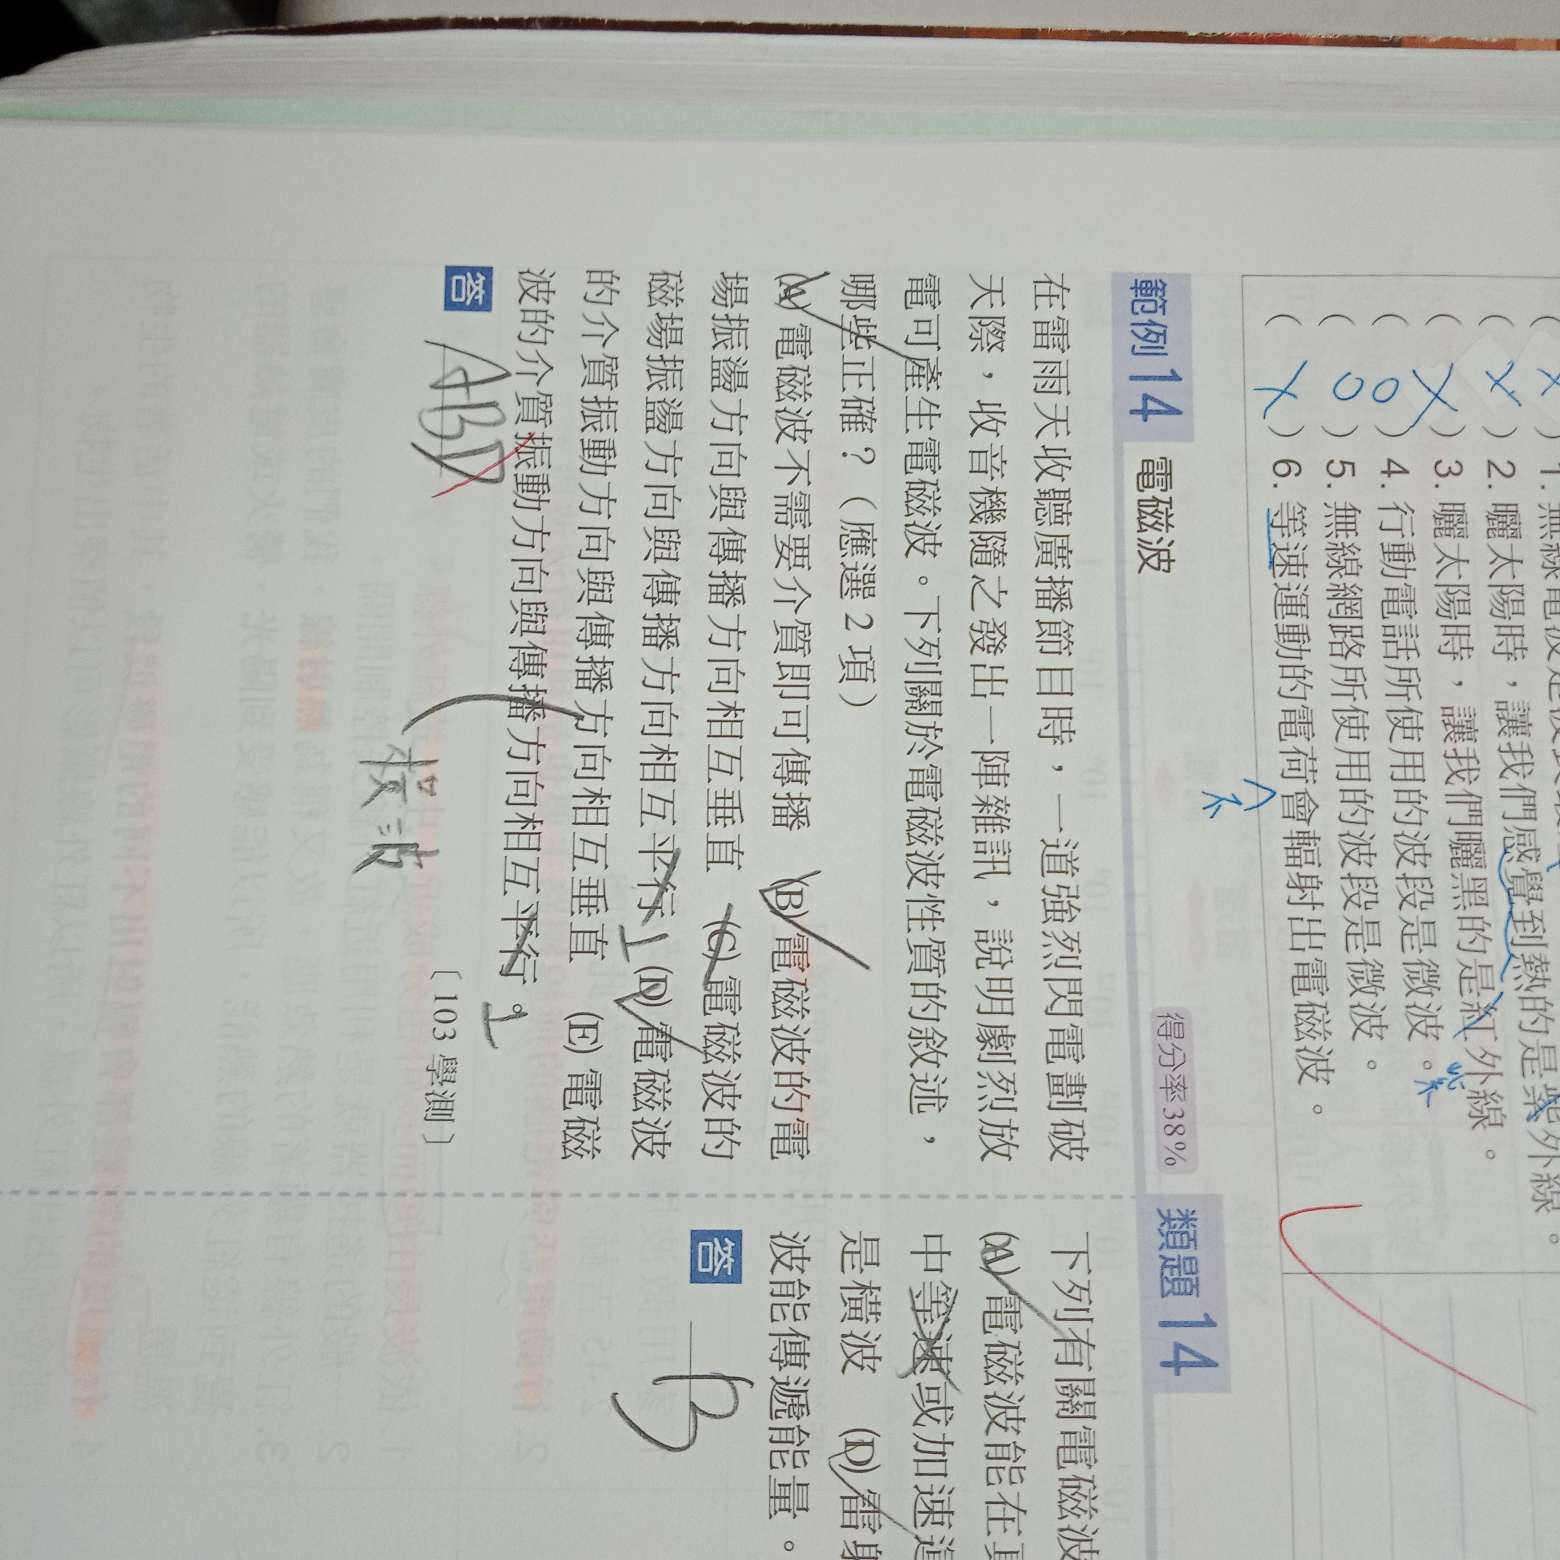 (X) 1. 無線電波是波長最
(X) 2. 曬太陽時，讓我們感覺到熱的是紫外線。
(X) 3. 曬太陽時，讓我們曬黑的是紅外線。
紫
(O) 4. 行動電話所使用的波段是微波。
(O) 5. 無線網路所使用的波段是微波。
(X) 6. 等速運動的電荷會輻射出電磁波。
不
範例14 電磁波 得分率38%
在雷雨天收聽廣播節目時，一道強烈閃電劃破
天際，收音機隨之發出一陣雜訊，說明劇烈放
電可產生電磁波。下列關於電磁波性質的敘述，
哪些正確？（應選2項）
(A)電磁波不需要介質即可傳播 (B)電磁波的電
場振盪方向與傳播方向相互垂直 (C)電磁波的
磁場振盪方向與傳播方向相互平行⊥(D)電磁波
的介質振動方向與傳播方向相互垂直 (E)電磁
波的介質振動方向與傳播方向相互平行。⊥
橫波
〔103學測〕
答 ABD
類題14
下列有關電磁波
(A)電磁波能在真
中等速或加速運
是橫波 (D)雷射
波能傳遞能量。
答 B